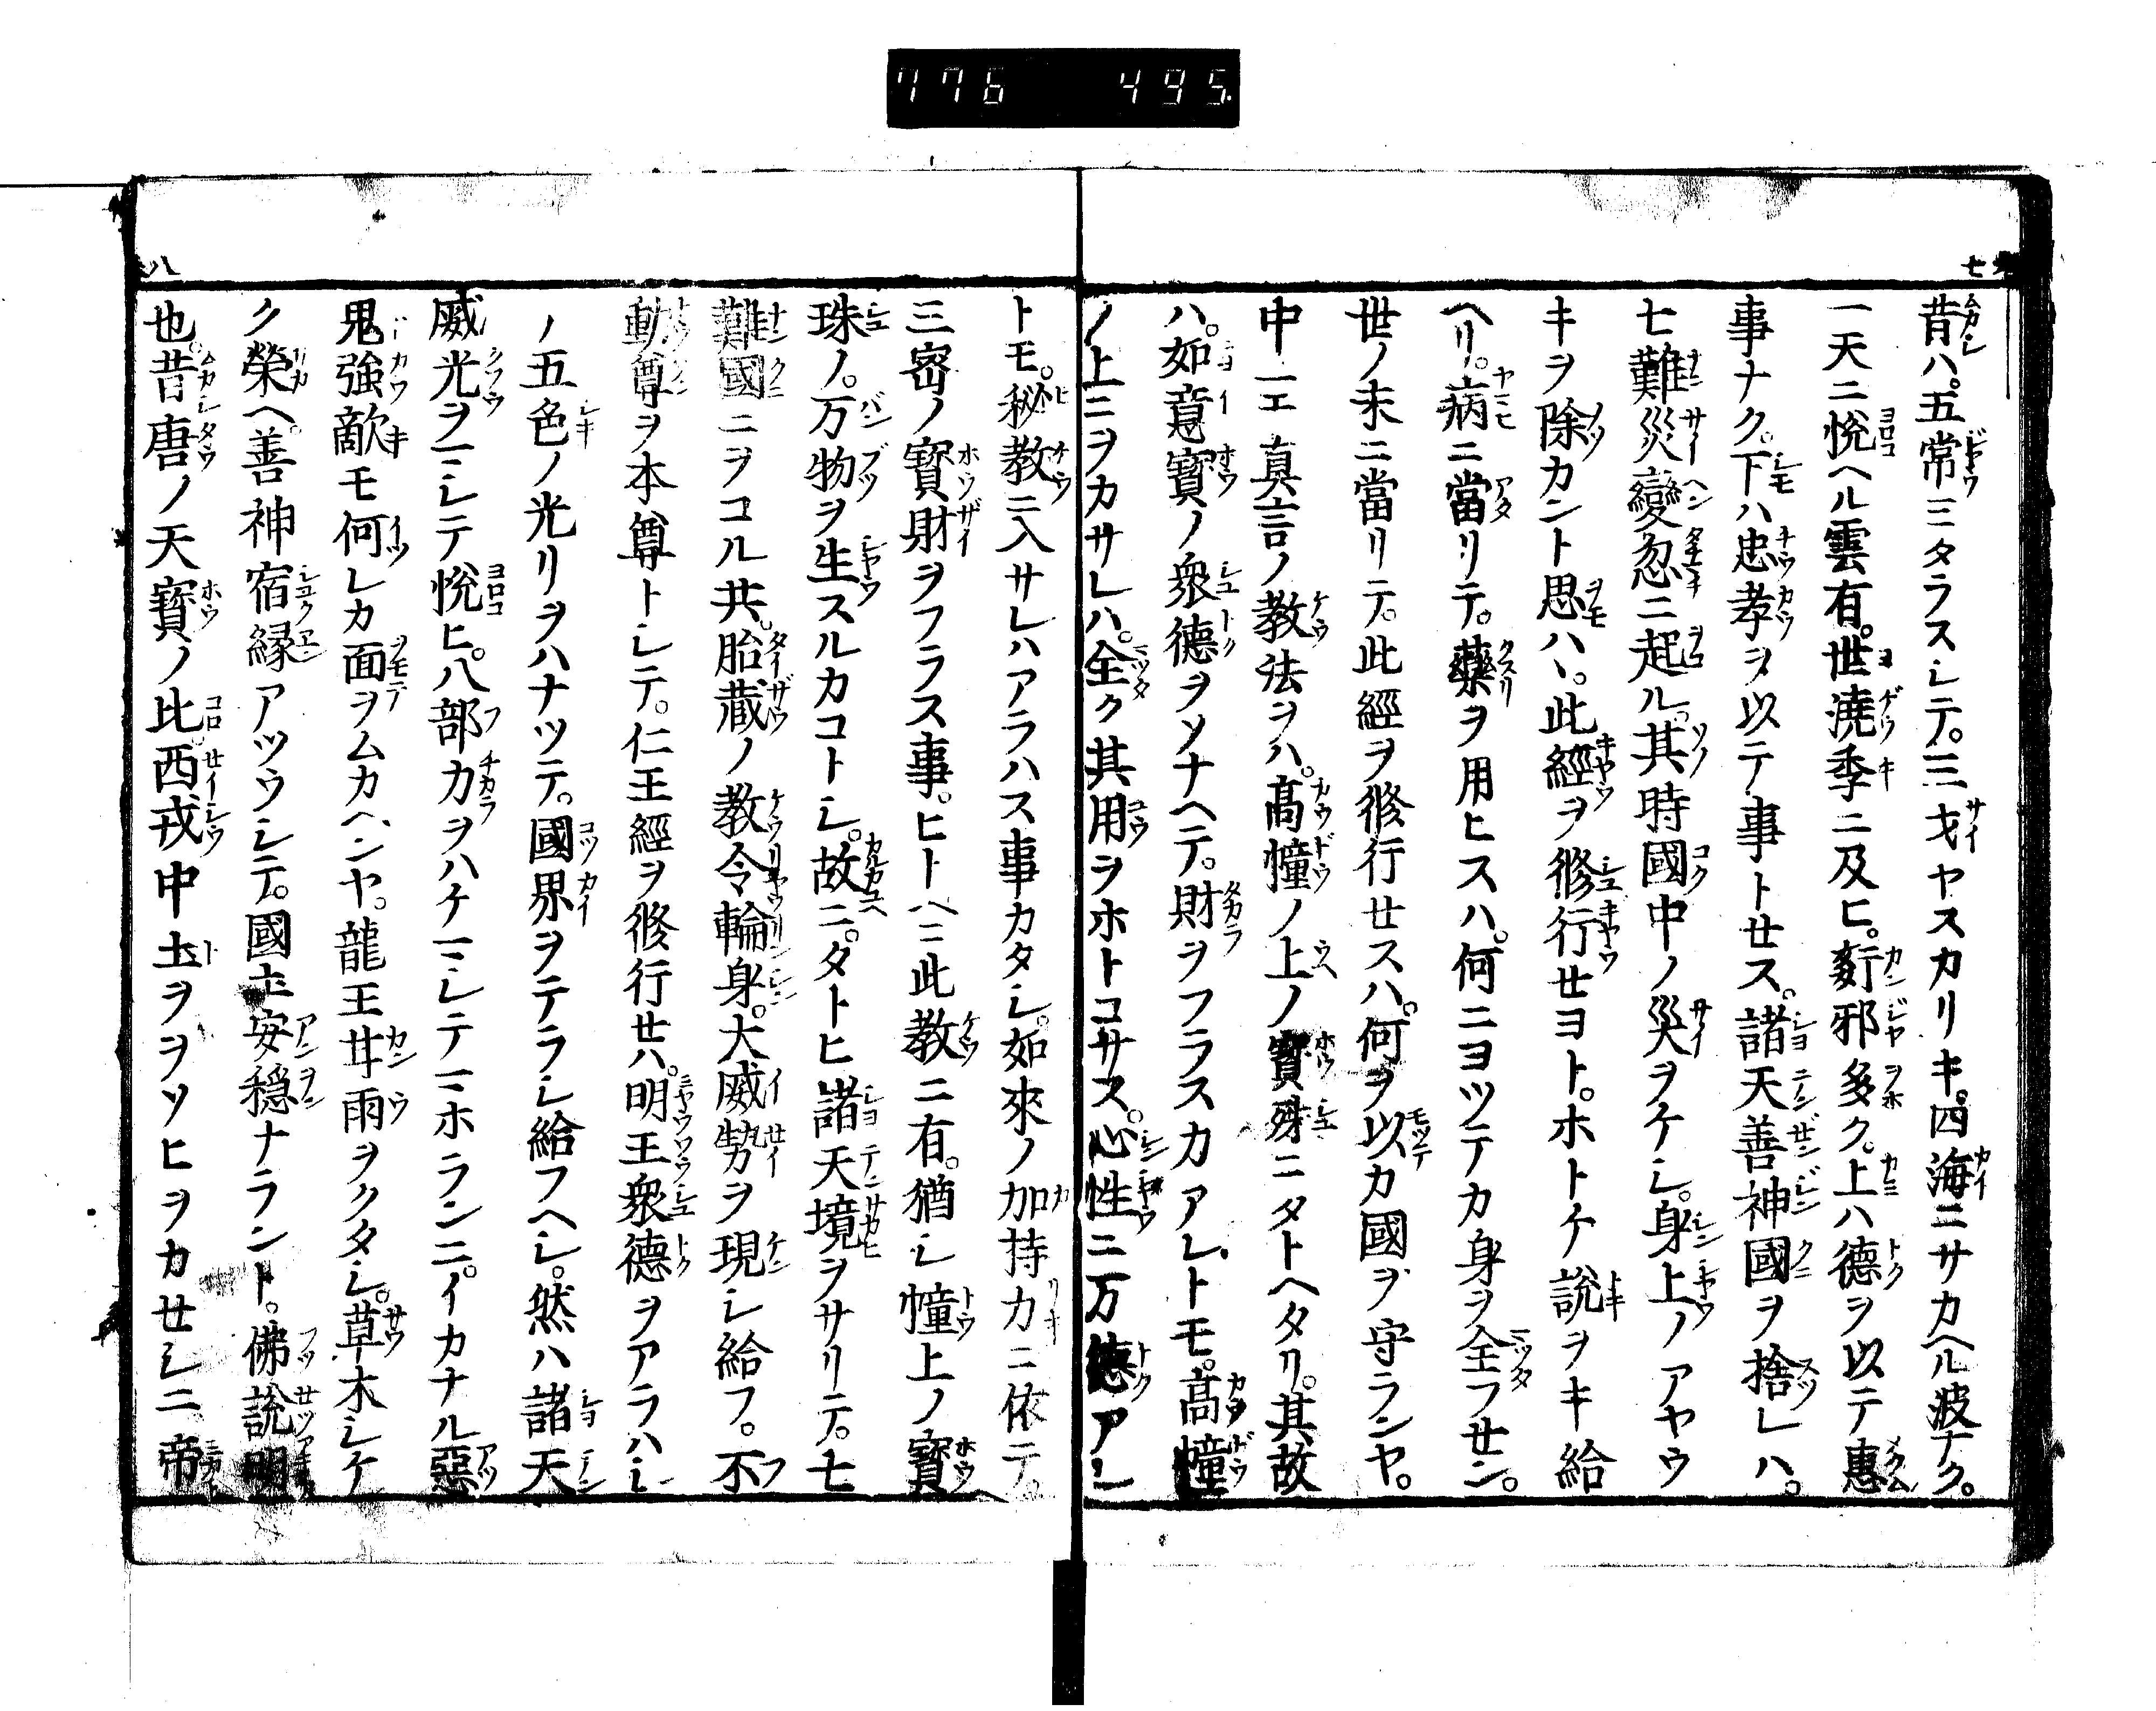 776 495
七
昔ハ。五常ミタラスシテ。三才ヤスカリキ。四海ニサカヘル波ナク。
一天ニ悦ヘル雲有。世澆季ニ及ヒ。姧邪多ク。上ハ德ヲ以テ惠
事ナク。下ハ忠孝ヲ以テ事トセス。諸天善神國ヲ捨レハ。
七難災變忽ニ起ル。其時國中ノ災ヲケシ。身上ノアヤウ
キヲ除カント思ハヽ。此經ヲ修行セヨト。ホトケ說ヲキ給
ヘリ。病ニ當リテ。藥ヲ用ヒスハ。何ニヨツテカ身ヲ全フセン。
世ノ末ニ當リテ。此經ヲ修行セスハ。何ヲ以カ國ヲ守ランヤ。
中ニヱ真言ノ教法ヲハ。髙幢ノ上ノ寳珠ニタトヘタリ。其故
ハ。如意寳ノ衆德ヲソナヘテ。財ヲフラスカアレトモ。髙幢
ノ上ニヲカサレハ。全ク其用ヲホトコサス。心性ニ万德アレ
トモ。秘教ニ入サレハアラハス事カタシ。如來ノ加持力ニ依テ。
三密ノ寳財ヲフラス事。ヒトヘニ此教ニ有。猶シ幢上ノ寳
珠ノ。万物ヲ生スルカコトシ。故ニ。タトヒ諸天境ヲサリテ。七
難國ニヲコル共。胎蔵ノ教令輪身。大威勢ヲ現シ給フ。不
動尊ヲ本尊トシテ。仁王經ヲ修行セハ。明王衆德ヲアラハシ
ノ五色ノ光リヲハナツテ。國界ヲテラシ給フヘシ。然ハ諸天
威光ヲマシテ悦ヒ。八部力ヲハケマシテマホランニ。イカナル惡
鬼強敵モ何レカ面ヲムカヘンヤ。龍王甘雨ヲクタシ。草木シケ
ク榮ヘ。善神宿縁アツウシテ。國土安穏ナラント。佛說明
也。昔唐ノ天寳ノ比西戎中土ヲヲソヒヲカセシニ帝
八